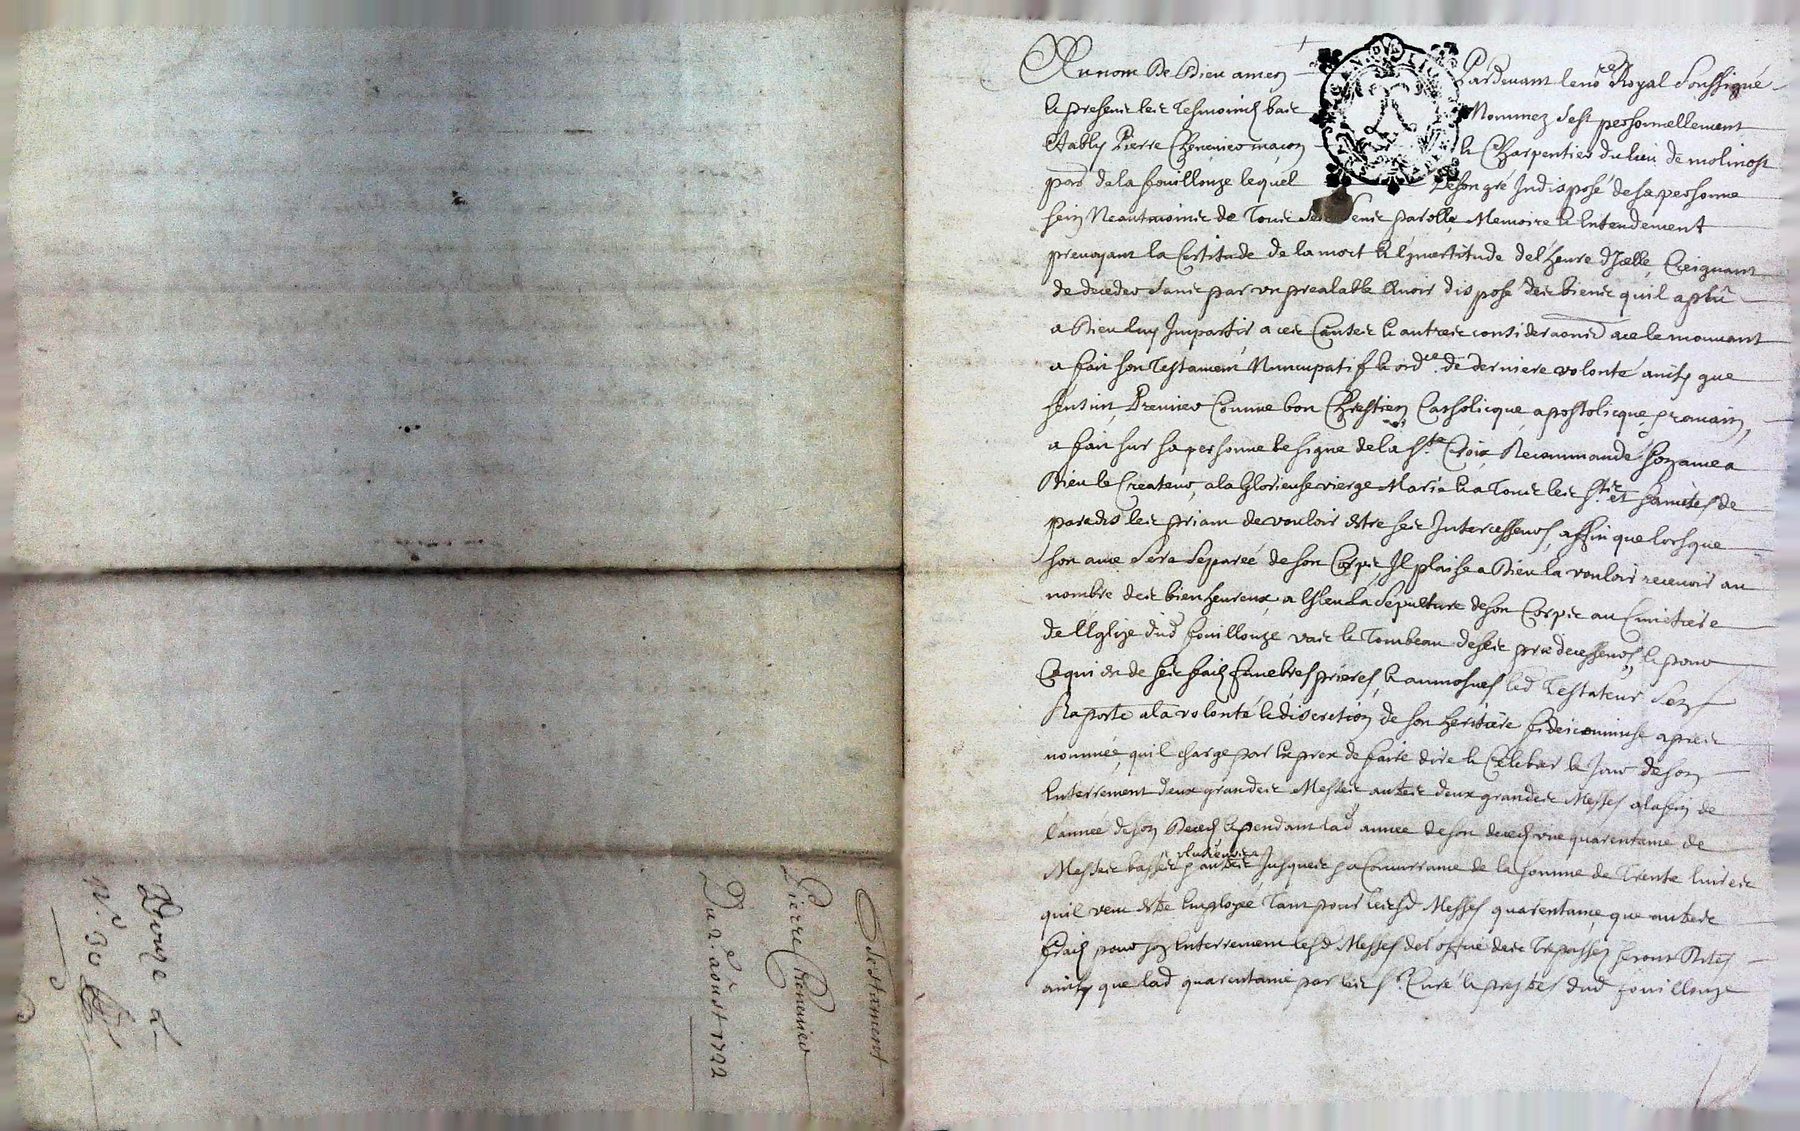 Testament
Pierre Chenevier
Du 2.e aoust 1722
Douze L
N.o 30
GEN. D. LION
Au nom De Dieu amen Pardevant le no.re Royal soussigné
et presens les Tesmoins bas Nommez s'est personnellement
Estably Pierre Chenevier maçon et Charpentier du lieu de molinost
parr. de la fouillouze lequel De son gré Indisposé de sa personne
sein Neantmoins de Tous ses sens parolle, Memoire et Entendement
prevoyant la Certitude de la mort et l'Incertitude de l'heure d'Icelle, Creignant
de deceder sans par un prealable Avoir disposé des biens qu'il a plû
a Dieu luy Impartir, a ces Causes et autres consideraons a ce le mouvant
a fait son Testament Nuncupatif et ord.ce de derniere volonté ainsy que
sensuit, Premier Comme bon Chrestien Catholicque, apostolicque, romain,
a fait sur sa personne le signe de la s.te Croix Recommandé son ame a
Dieu le Createur, a la Glorieuse vierge Marie et a Tous les s.ts et saintes de
paradis les priant de vouloir estre ses Intercesseurs, affin que lorsque
son ame sera separée de son Corps Il plaise a Dieu la vouloir recevoir au
nombre des bien heureux, a Esleu La sepulture de son Corps au Cimetiere
de l'Eglize dud. fouillouze vas et Tombeau de ses predecesseurs, et pour
Ce qui est de ses frais funebres prieres, et aumosnes led. Testateur s'en
Raporte a la volonté et discretion de son heritiere fideicommise apres
nommée, qu'il charge par Exprex de faire dire et Celebrer le Jour de son
Enterrement deux grandes Messes autres deux grandes Messes a la fin de
l'année de son Deceds et pendant lad. année de son deceds une quarentaine de
Messes basses Jusques a Concurrance de la somme de Trente livres
qu'il veut estre Employée Tant pour lesd. Messes quarentaine, que autres
frais pour son Enterrement lesd. Messes de l'office des Trepassez seront Dites
ainsy que lad. quarentaine par les s.r Curé et prestres dud. fouillouze